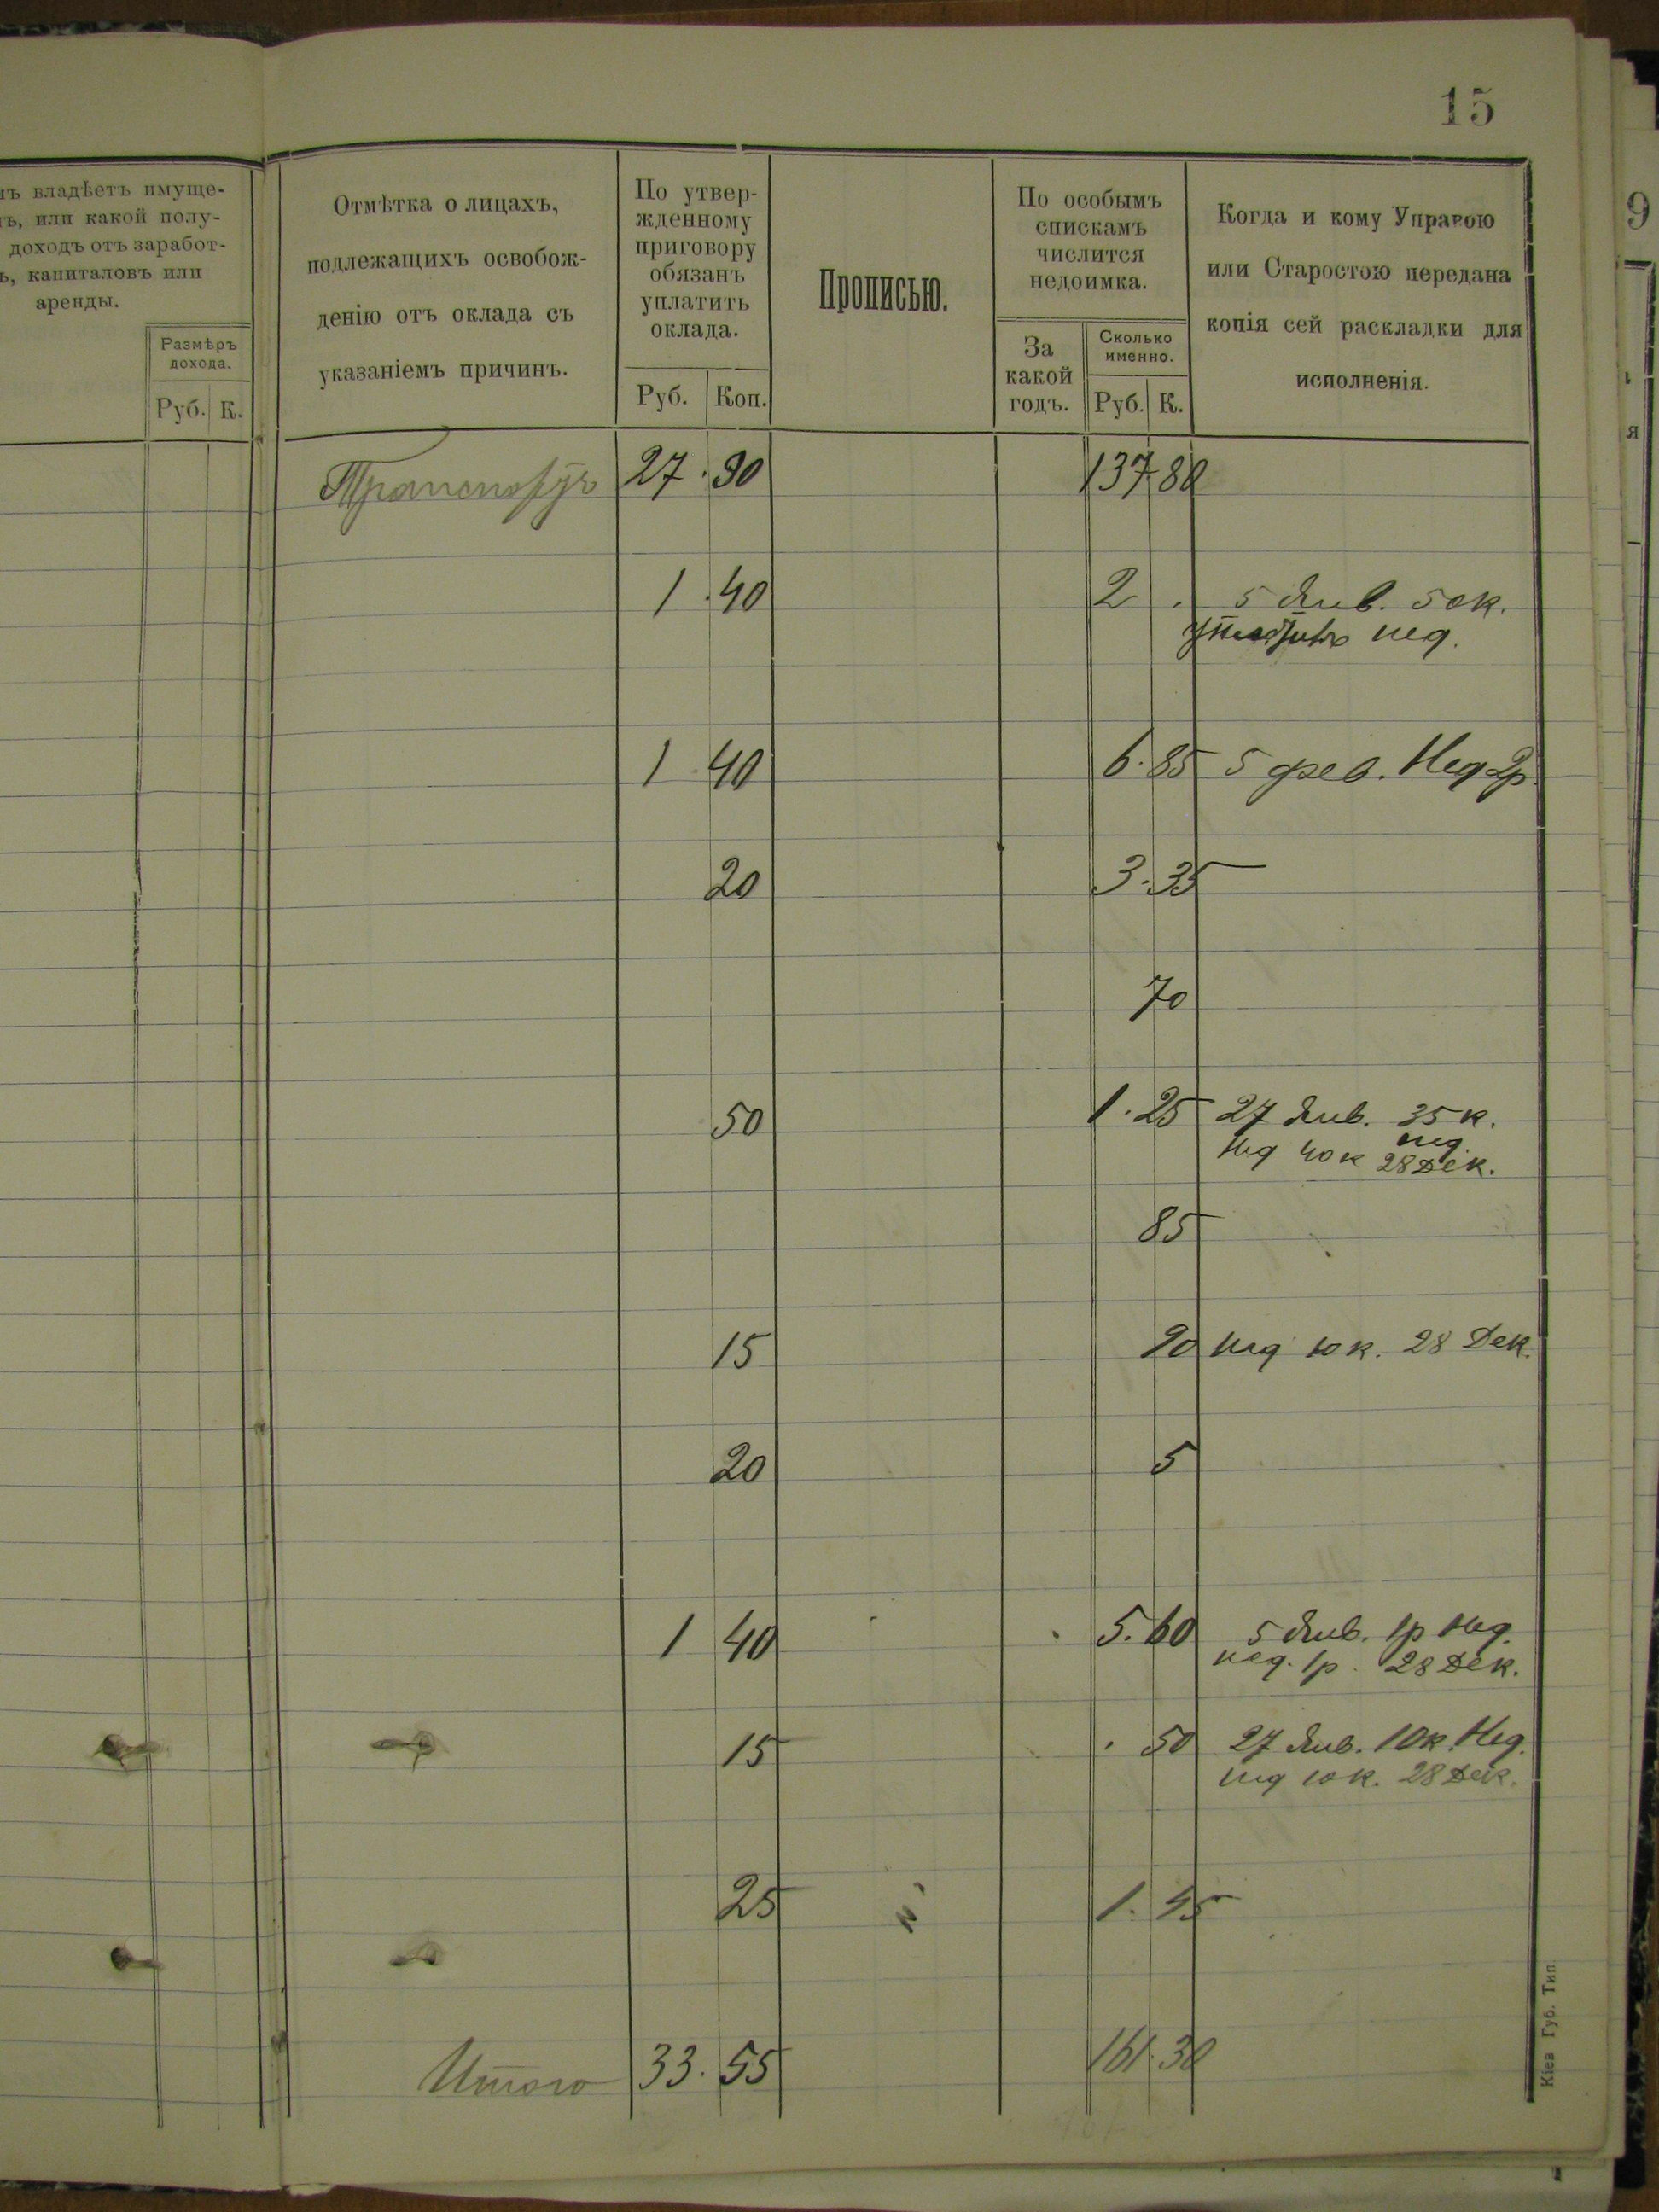 15
9
нъ владѣетъ имуще-
ъ, или какой полу-
доходъ отъ заработ-
ъ, капиталовъ или
аренды.
Размѣръ
дохода.
Руб. К.
Отмѣтка о лицахъ,
подлежащихъ освобож-
денію отъ оклада съ
указаніемъ причинъ.
По утвер-
жденному
приговору
обязанъ
уплатить
оклада.
Руб. Коп.
Прописью.
По особымъ
спискамъ
числится
недоимка.
За
какой
годъ.
Сколько
именно.
Руб. К.
Когда и кому Управою
или Старостою передана
копія сей раскладки для
исполненія.
Транспортъ 27 . 90 137.80
1 . 40 2 . 5 Янв. 50к.
нед.
1 40 6.85 5 фев. Нед 2р
20 3.35
70
50 1.25 27 Янв. 35 к.
нед
Нед 40к 28 Дек.
85
15 90 нед 10к. 28 Дек.
20 5
1 40 5.60 5 Янв. 1р Нед.
нед. 1р. 28 Дек.
15 . 50 27 Янв. 10к. Нед.
нед 10к. 28 Дек.
25 1. 45
Итого 33. 55 161.30
Кіев Губ. Тип.